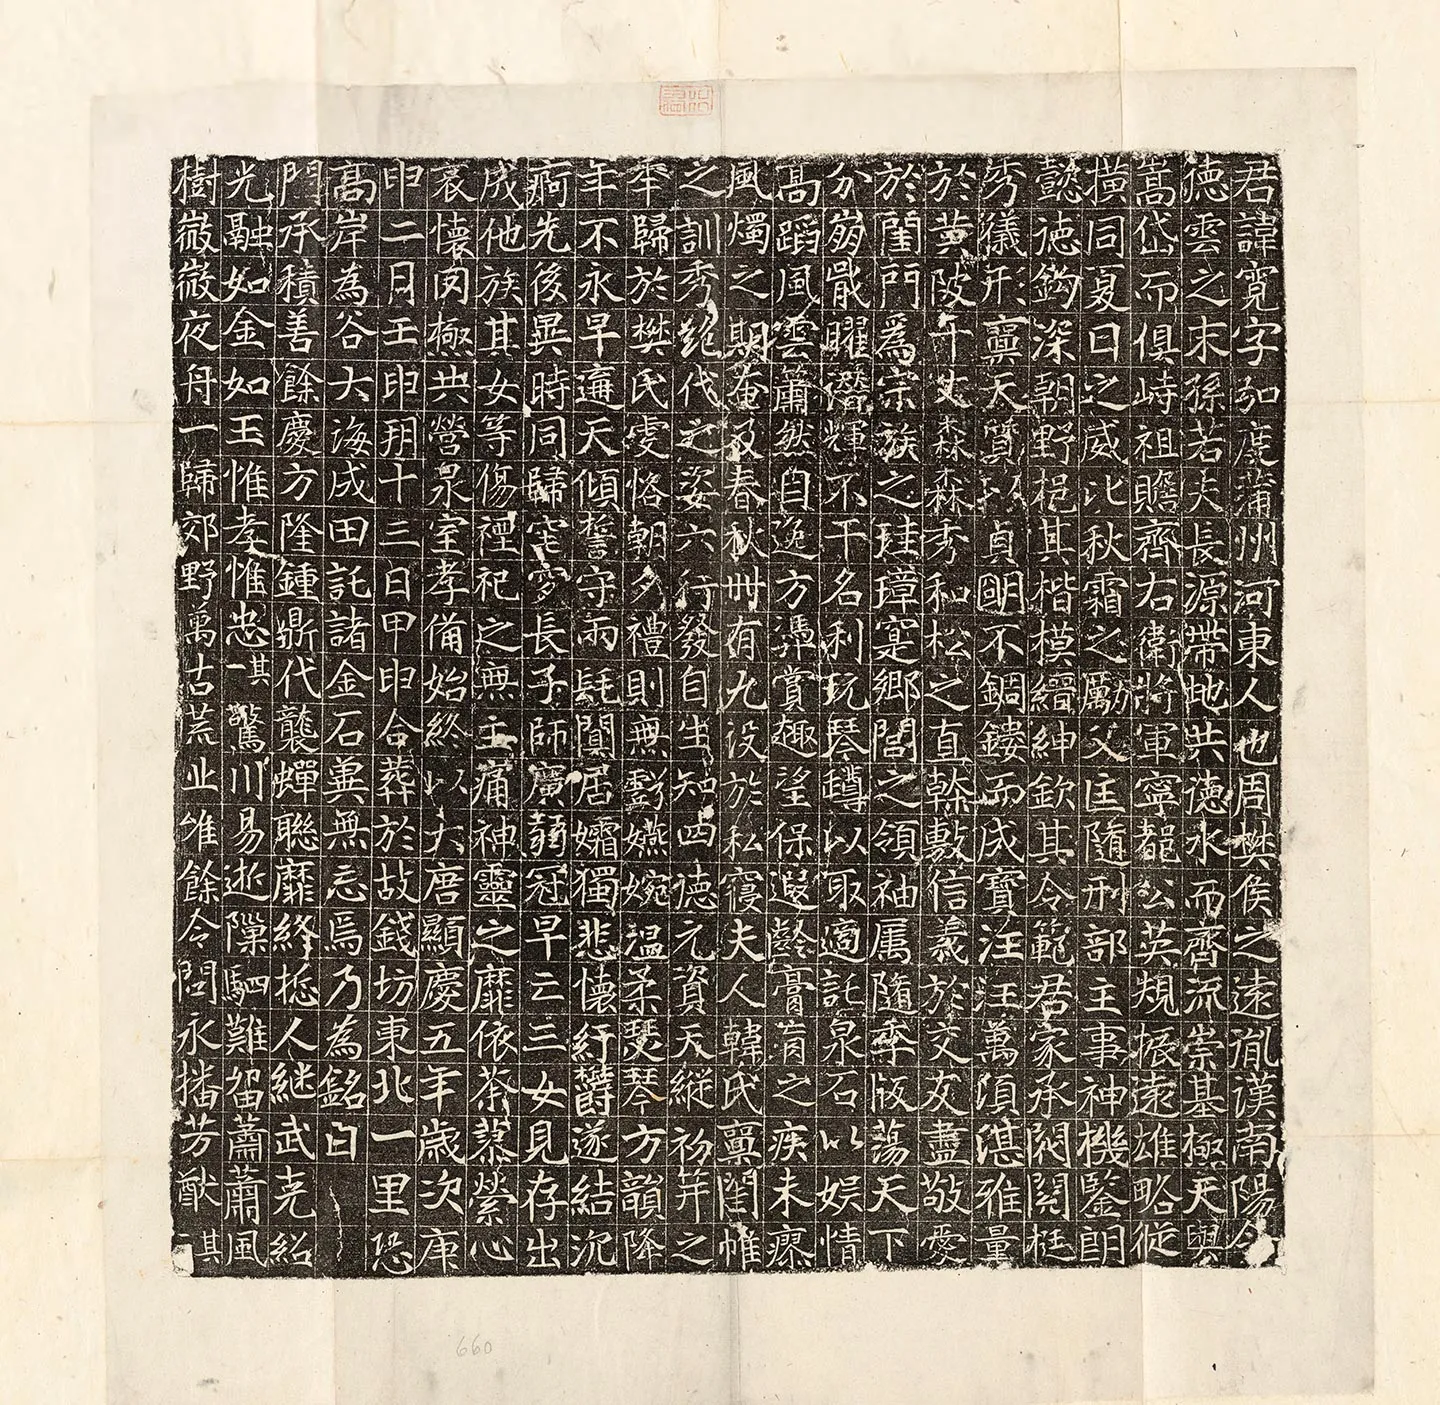 君諱寬字弘度蒲州河東人也周樊侯之遠胤漢南陽令
德雲之末孫若夫長源帶地共德水而齊流崇基極天與
嵩岱而俱峙祖贍齊右衛將軍寧都公英規振遠雄略從
橫同夏日之威比秋霜之厲父匡隨刑部主事神機鑒朗
懿德鈎深朝野挹其楷模縉紳欽其令範君家承閥閱挺
秀儀形稟天質以貞明不錮鏤而成寶汪汪萬頃湛雅量
於黃陂千丈森森秀和松之直幹敷信義於交友盡敬愛
於閨門為宗族之珪璋寔鄉閭之領袖属隨季版蕩天下
分崩戢曜潛輝不干名利玩琴鐏以取適託泉石以娛情
高蹈風雲蕭然自逸方憑賞趣望保遐齡膏肓之疾未瘳
風燭之期奄及春秋卌有九没於私寢夫人韓氏稟閨帷
之訓秀絕代之姿六行發自生知四德元資天縱初笄之
年歸於樊氏雯恪朝夕禮則無虧嬿婉溫柔琴方韻降
年不永早遘天傾誓守兩髦闃居孀獨悲懷紆欝遂結沉
痾先後異時同歸窀穸長子師廣蒻冠早亡三女見存出
成他族其女等傷禋祀之無主痛神靈之靡依荼蓼縈心
哀懷罔極共營泉室孝備始終以大唐顯慶五年歲次庚
申二月壬申朔十三日甲申合葬於故錢坊東北一里恐
高岸為谷大海成田託諸金石冀無忘焉乃為銘曰
門承積善餘慶方隆鍾鼎代襲蟬聯靡終摠人継武克紹
光融如金如玉惟孝惟忠其一驚川易逝隟駟難留蕭蕭風
樹嶶嶶夜舟一歸郊野萬古荒丘唯餘令問永播芳猷其
660